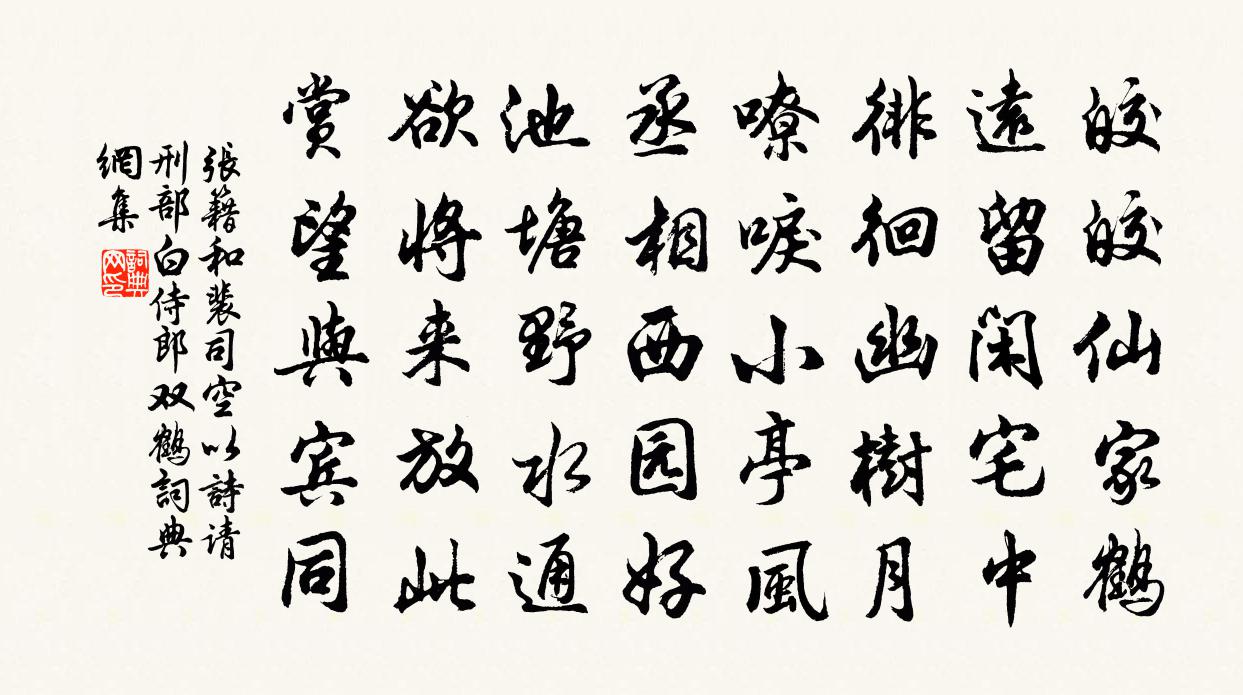 皎皎仙家鹤
遠留閑宅中
徘徊幽樹月
嘹唳小亭風
丞相西园好
池塘野水通
欲将来放此
赏望與宾同
張籍和裴司空以詩请
刑部白侍郎双鹤詞典
網集
詞典网印